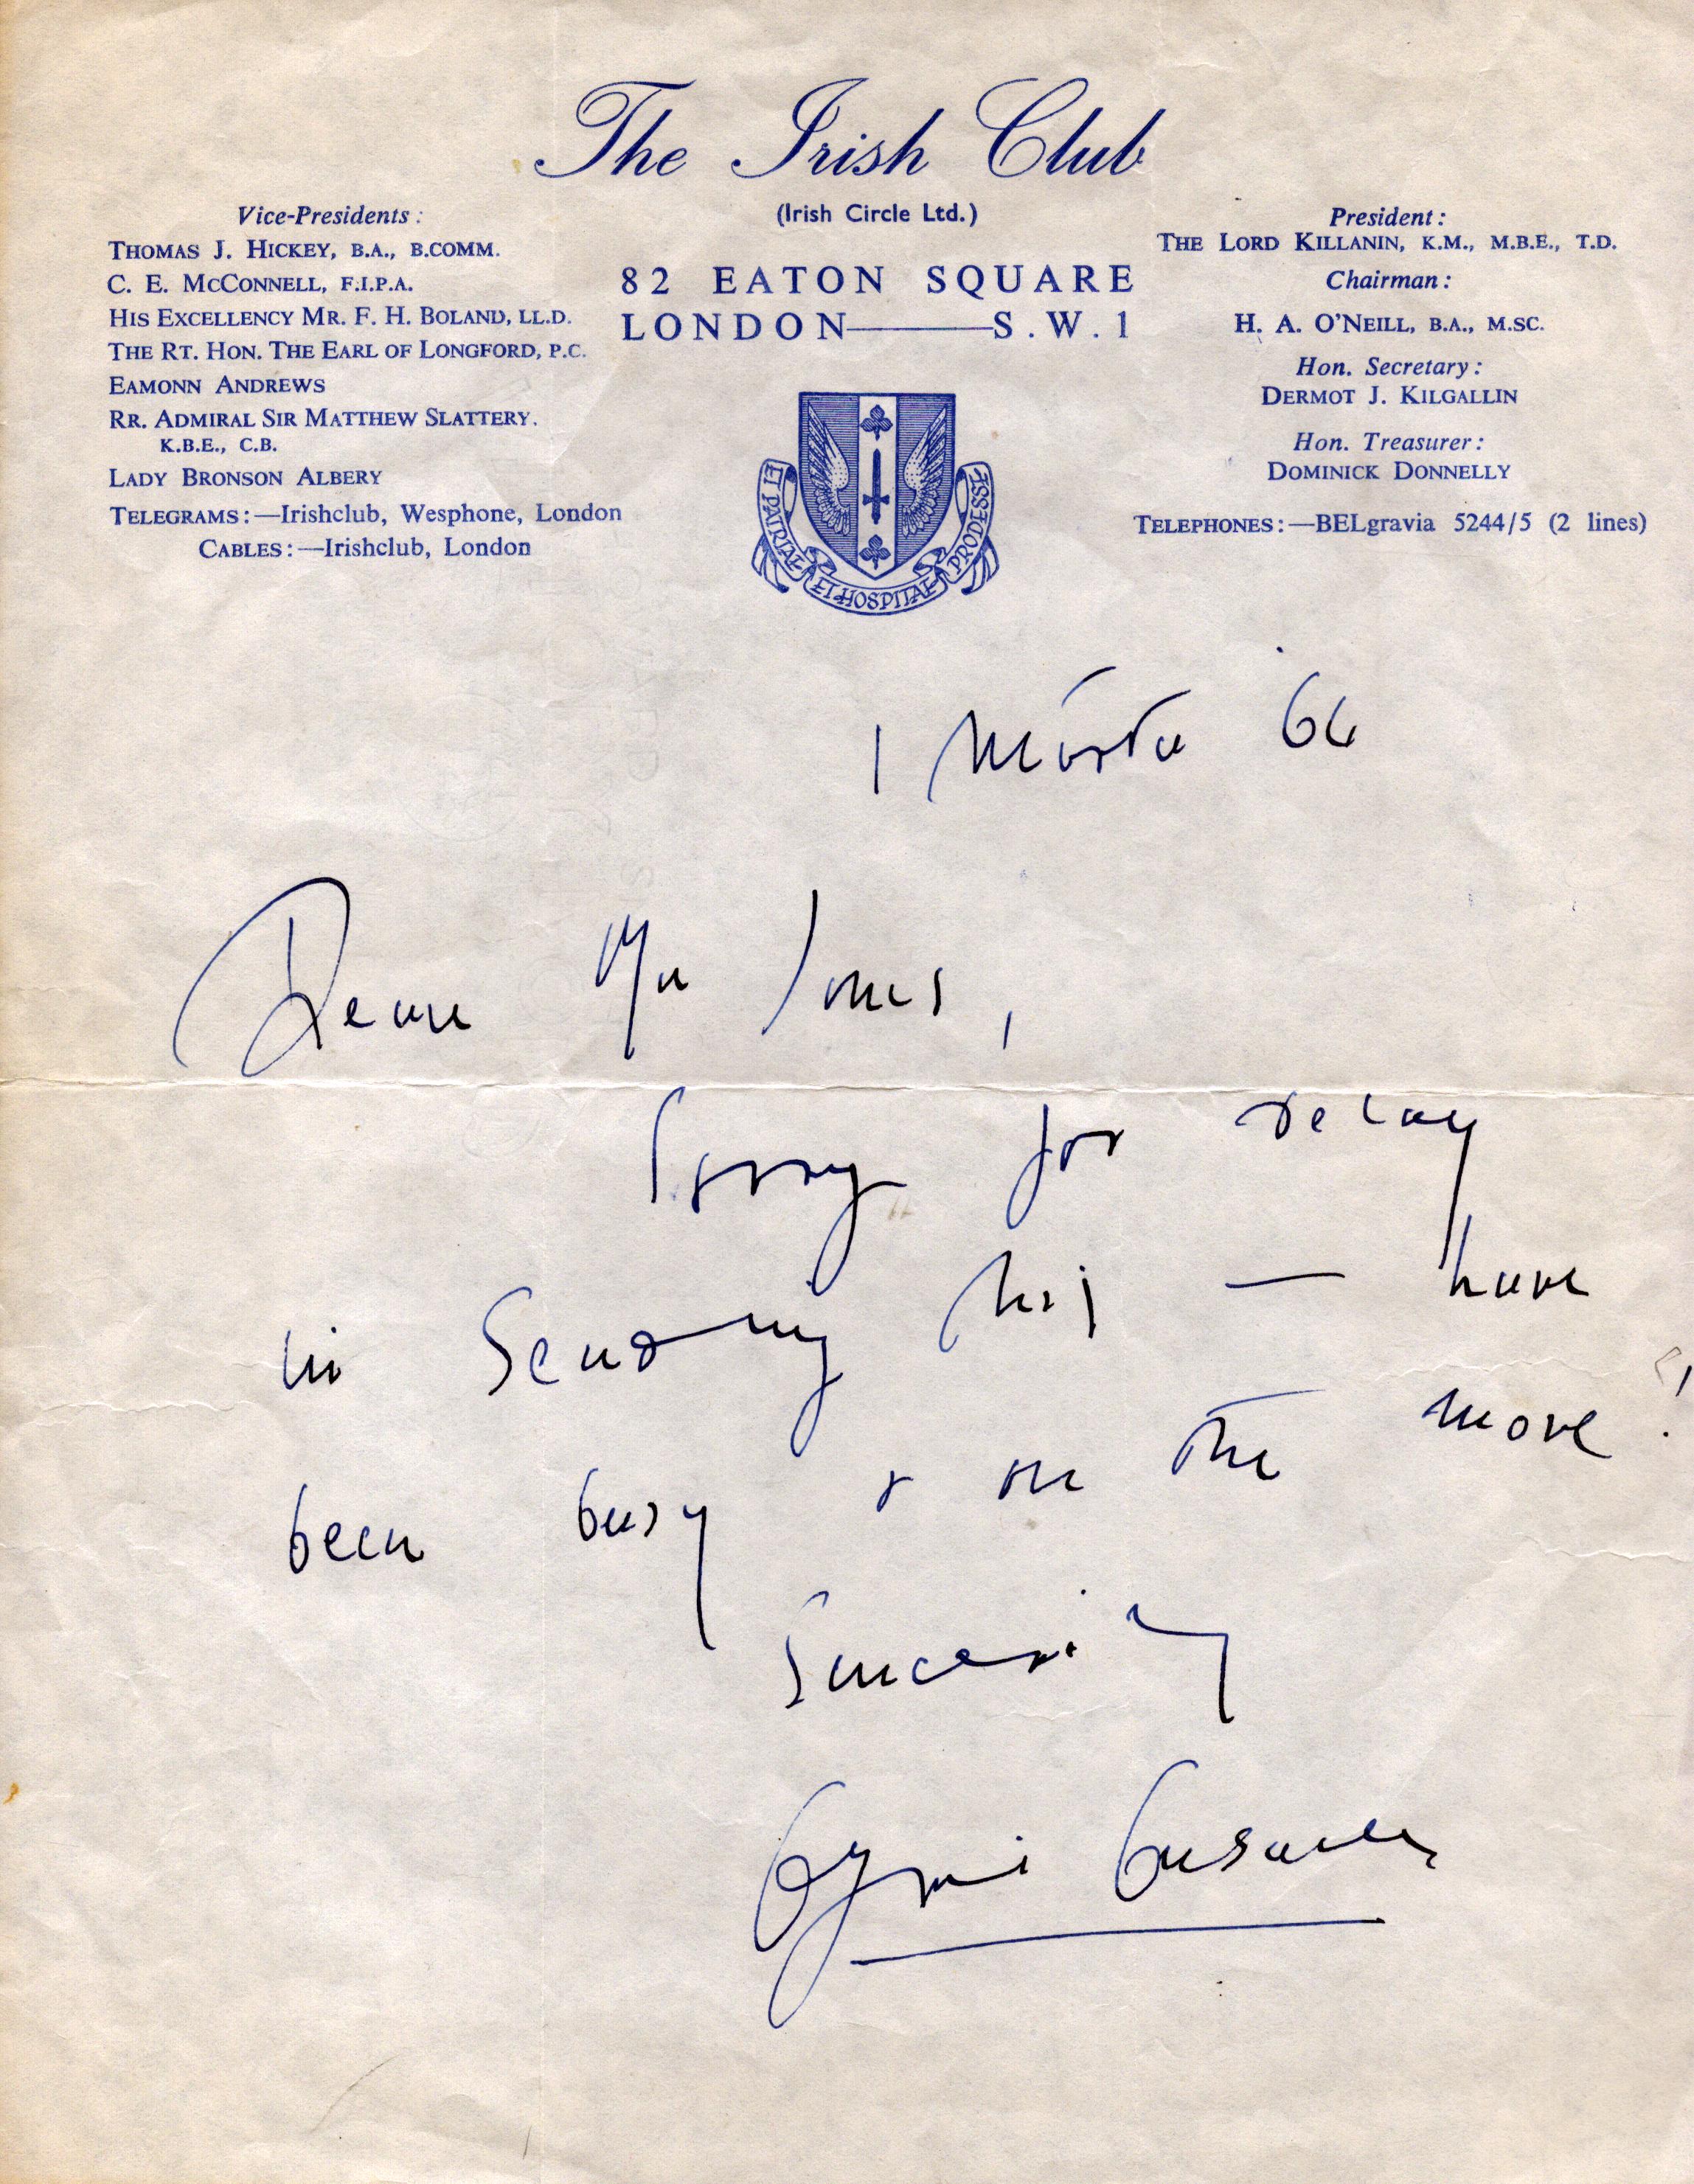 The Irish Club
(Irish Circle Ltd.)
82 EATON SQUARE
LONDON——S.W.1
Vice-Presidents:
THOMAS J. HICKEY, B.A., B.COMM.
C. E. MCCONNELL, F.I.P.A.
HIS EXCELLENCY MR. F. H. BOLAND, LL.D.
THE RT. HON. THE EARL OF LONGFORD, P.C.
EAMONN ANDREWS
RR. ADMIRAL SIR MATTHEW SLATTERY.
K.B.E., C.B.
LADY BRONSON ALBERY
TELEGRAMS:—Irishclub, Wesphone, London
CABLES:—Irishclub, London
President:
THE LORD KILLANIN, K.M., M.B.E., T.D.
Chairman:
H. A. O'NEILL, B.A., M.SC.
Hon. Secretary:
DERMOT J. KILGALLIN
Hon. Treasurer:
DOMINICK DONNELLY
TELEPHONES:—BELgravia 5244/5 (2 lines)
ET PATRIAE ET HOSPITAE PRODESSE
1 Márta '66
Dear Mr Jones,
Sorry for delay
in sending this — have
been busy & on the move!
Sincerely
Cyril Cusack